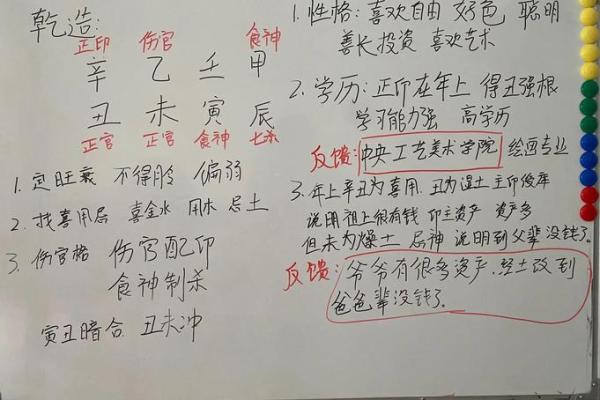 乾造:
正印 伤官 食神
辛 乙 壬 甲
丑 未 寅 辰
正官 正官 食神 七杀
1. 定旺衰 不得令 偏弱
2. 找喜用忌 喜金水 用水 忌土
3. 伤官格 伤官配印
食神制杀
寅丑暗合 丑未冲
1. 性格: 喜欢自由 好色 聪明
善长投资 喜欢艺术
2. 学历: 正印在年上 得丑强根
学习能力强 高学历
反馈: 中央工艺美术学院 绘画专业
3. 年上辛丑为喜用. 丑为湿土 主印
说明祖上很有钱 印主资产 资产多
但未为燥土 忌神 说明到父辈没钱了.
反馈: 爷爷有很多资产. 土改到
爸爸辈没钱了.